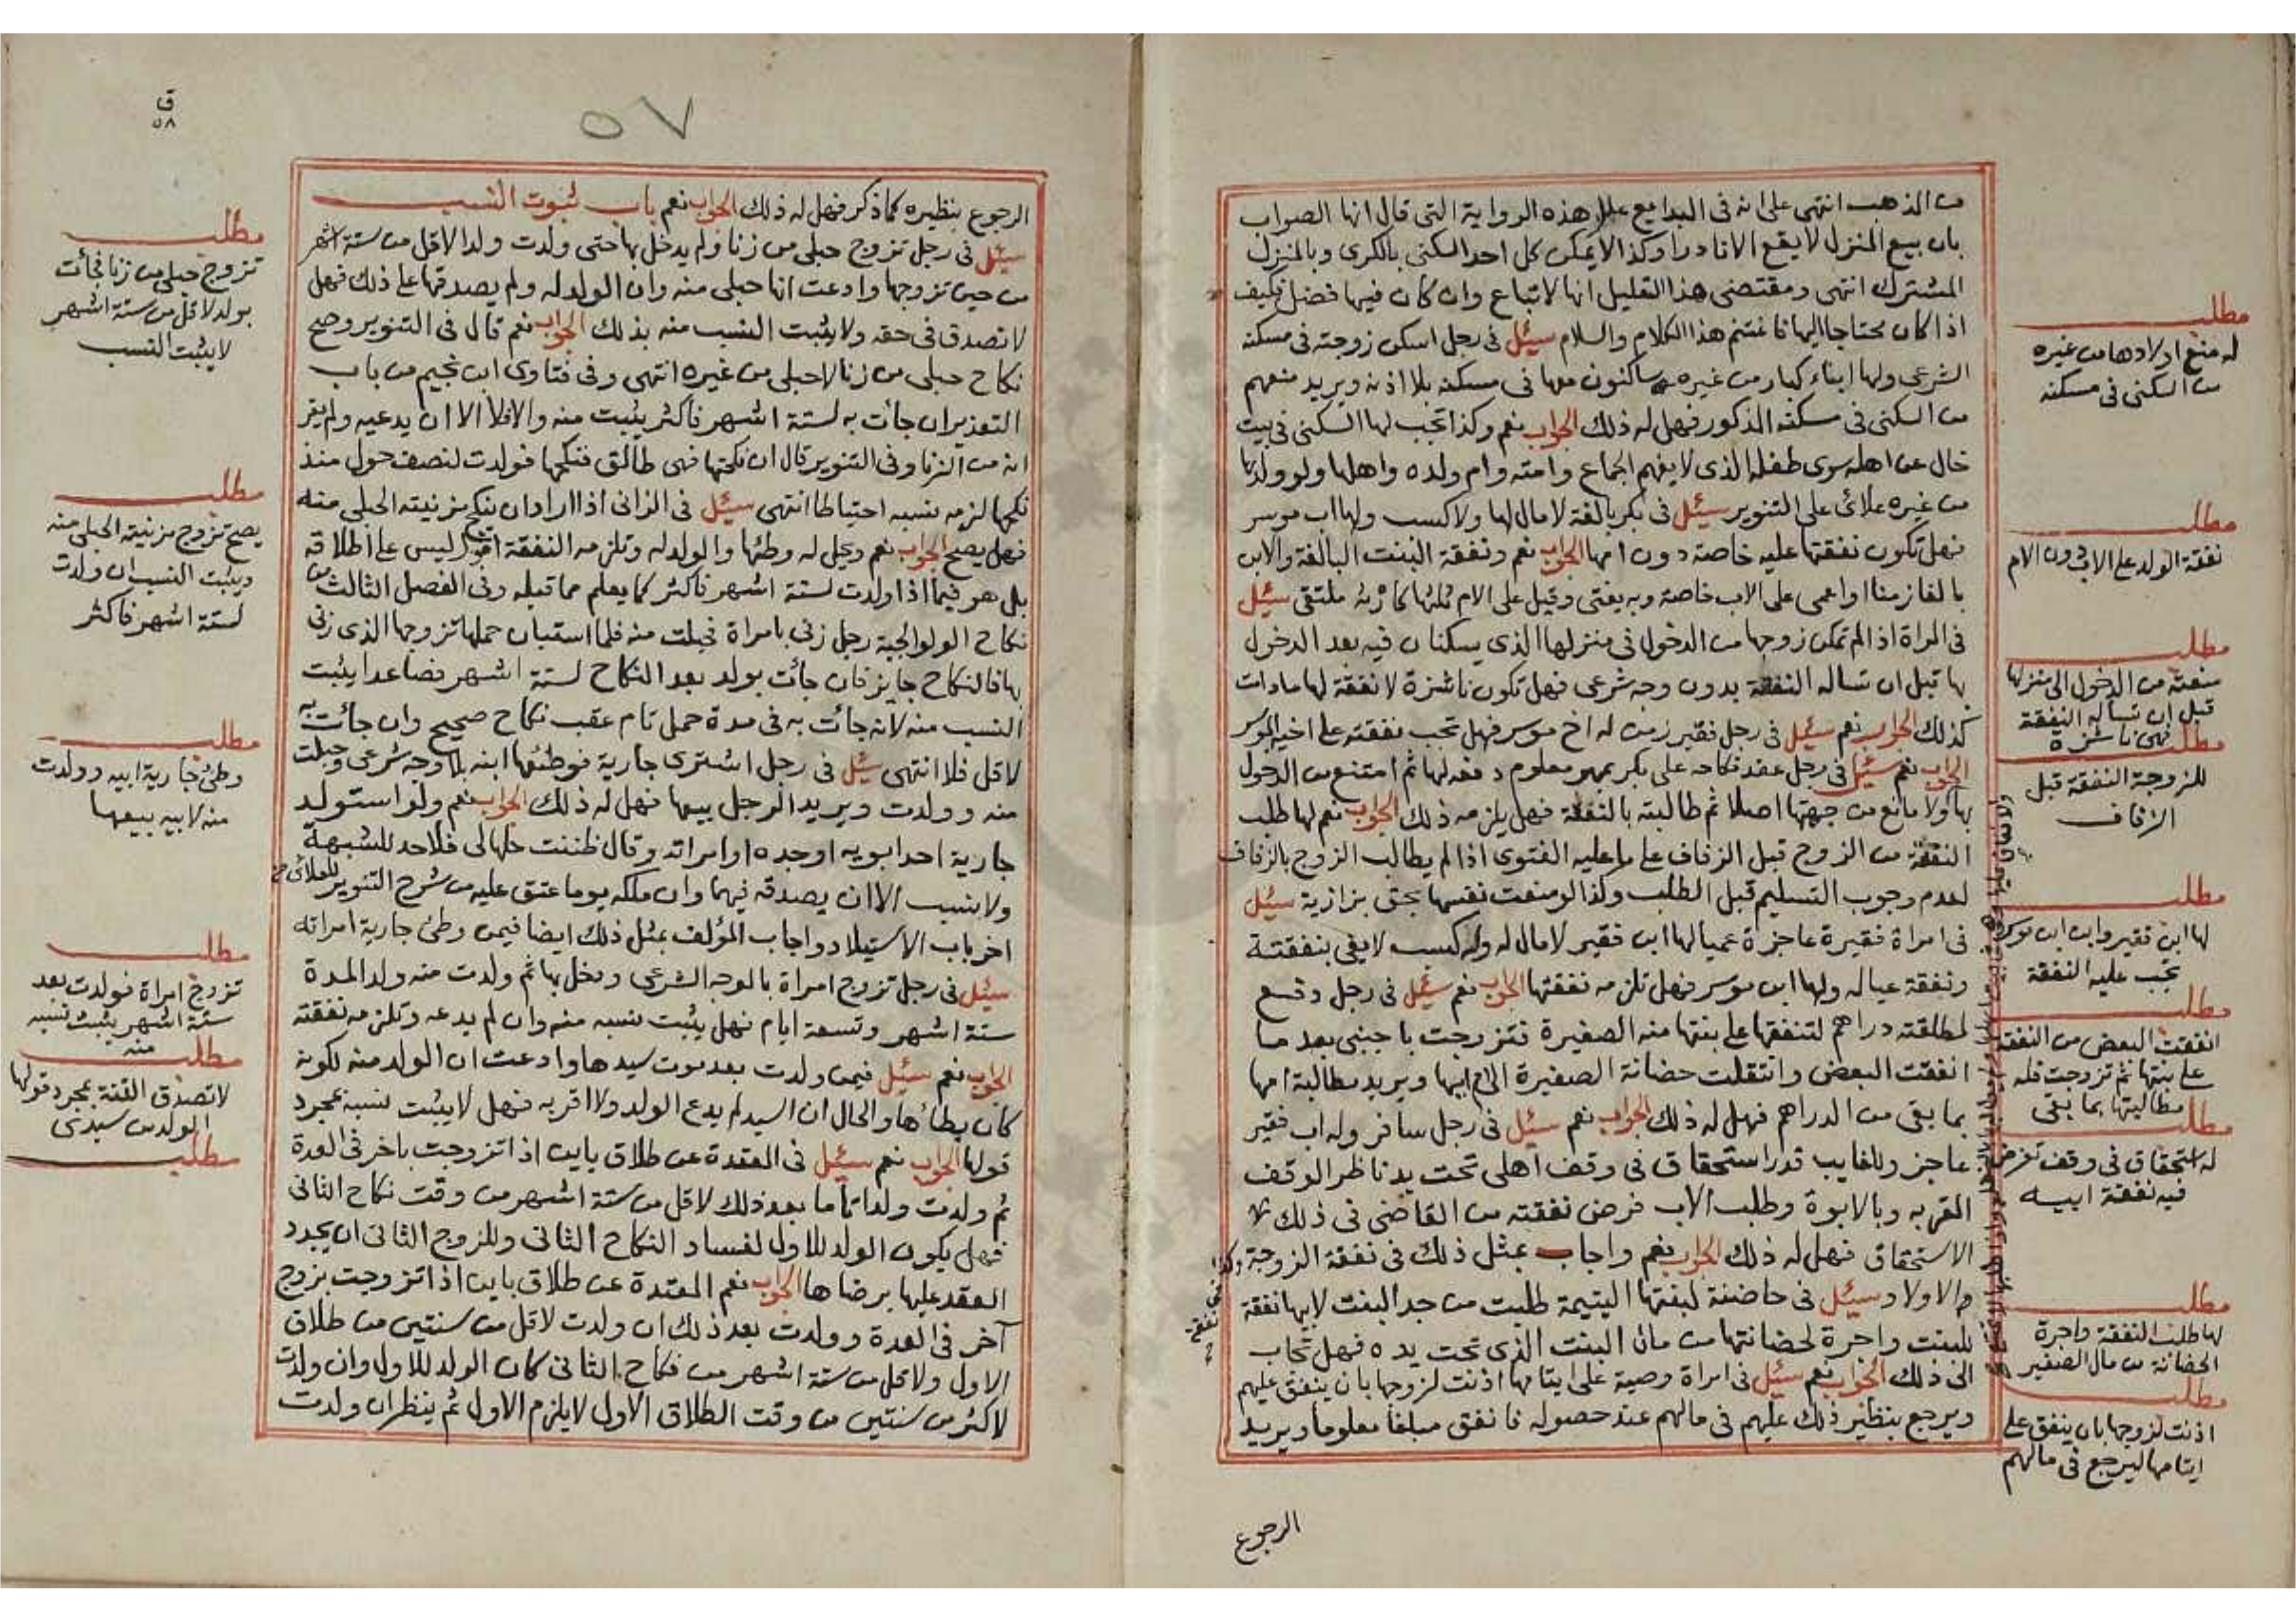 من الذهب انتهى على انه في البدايع علل هذه الرواية التي قال انها الصواب
بان بيع المنزل لا يقع الا نادرا وكذا لا يمكن كل احد السكنى بالكرى وبالمنزل
المشترك انتهى ومقتضى هذا التعليل انها لا تباع وان كان فيها فضل فكيف
اذا كان محتاجا اليها فاغتنم هذا الكلام والسلام سئل في رجل اسكن زوجته في مسكنه
الشرعى ولها ابناء كبار من غيره ساكنون معها في مسكنه بلا اذنه ويريد منعهم
من السكنى في مسكنه المذكور فهل له ذلك الجواب نعم وكذا تجب لها السكنى في بيت
خال عن اهله سوى طفله الذى لا يفهم الجماع وامته وام ولده واهلها ولو ولدها
من غيره علائى على التنوير سئل في بكر بالغة لا مال لها ولا كسب ولها اب موسر
فهل تكون نفقتها عليه خاصة دون امها الجواب نعم ونفقة البنت البالغة والابن
بالغا زمنا او اعمى على الاب خاصة وبه يفتى وقيل على الام ثلثها كارثه ملتقى سئل
في المراة اذا لم تمكن زوجها من الدخول في منزلها الذى يسكنان فيه بعد الدخول
بها قبل ان تساله النقلة بدون وجه شرعى فهل تكون ناشزة لا نفقة لها ما دامت
كذلك الجواب نعم سئل في رجل فقير زمن له اخ موسر فهل تجب نفقته على اخيه الموسر
الجواب نعم سئل في رجل عقد نكاحه على بكر بمهر معلوم دفعه لها ثم امتنع من الدخول
بها ولا مانع من جهتها اصلا ثم طالبته بالنفقة فهل يلزمه ذلك الجواب نعم لها طلب
النفقة من الزوج قبل الزفاف على ما عليه الفتوى اذا لم يطالب الزوج بالزفاف
لعدم وجوب التسليم قبل الطلب وكذا لو منعت نفسها بحق بزازية سئل
في امراة فقيرة عاجزة عميا لها ابن فقير لا مال له وله كسب لا يفى بنفقتة
ونفقة عياله ولها ابن موسر فهل تلزمه نفقتها الجواب نعم سئل في رجل دفع
لمطلقته دراهم لتنفقها على بنتها منه الصغيرة فتزوجت باجنبى بعد ما
انفقت البعض وانتقلت حضانة الصغيرة الى ام ابيها ويريد مطالبة امها
بما بقى من الدراهم فهل له ذلك الجواب نعم سئل في رجل سافر وله اب فقير
عاجز وللغايب قدر استحقاق في وقف اهلى تحت يد ناظر الوقف
المقر به وبالابوة وطلب الاب فرض نفقته من القاضى في ذلك
الاستحقاق فهل له ذلك الجواب نعم واجاب بمثل ذلك في نفقة الزوجة
والاولاد سئل في حاضنة لبنتها اليتيمة طلبت من جد البنت لابيها نفقة
للبنت واجرة لحضانتها من مال البنت الذى تحت يده فهل تجاب
الى ذلك الجواب نعم سئل في امراة وصية على ايتامها اذنت لزوجها بان ينفق عليهم
ويرجع بنظير ذلك عليهم في مالهم عند حصوله فانفق مبلغا معلوما ويريد
الرجوع
مطلب
له منع اولادها من غيره
من السكنى في مسكنه
مطلب
نفقة الولد على الاب دون الام
مطلب
منعته من الدخول الى منزلها
قبل ان تساله النفقة
فهى ناشزة
مطلب
للزوجة النفقة قبل
الزفاف
مطلب
لها ابن فقير وابن ابن موسر
تجب عليه النفقة
مطلب
انفقت البعض من النفقة
على بنتها ثم تزوجت فله
مطالبتها بما بقى
مطلب
له استحقاق في وقف تفرض
فيه نفقة ابيه
مطلب
لها طلب النفقة واجرة
الحضانة من مال الصغير
مطلب
اذنت لزوجها بان ينفق على
ايتامها ليرجع في مالهم
ق
٥٨
٥٧
الرجوع بنظيره كما ذكر فهل له ذلك الجواب نعم باب ثبوت النسب
سئل في رجل تزوج حبلى من زنا ولم يدخل بها حتى ولدت ولدا لاقل من ستة اشهر
من حين تزوجها وادعت انها حبلى منه وان الولد له ولم يصدقها على ذلك فهل
لا تصدق في حقه ولا يثبت النسب منه بذلك الجواب نعم قال في التنوير وصح
نكاح حبلى من زنا لا حبلى من غيره انتهى وفي فتاوى ابن نجيم من باب
التعذير ان جائت به لستة اشهر فاكثر يثبت منه والا فلا الا ان يدعيه ولم يقر
انه من الزنا وفي التنوير قال ان نكحتها فهى طالق فنكحها فولدت لنصف حول منذ
نكحها لزمه نسبه احتياطا انتهى سئل في الزانى اذا اراد ان ينكح مزنيته الحبلى منه
فهل يصح الجواب نعم ويحل له وطئها والولد له وتلزمه النفقة اقول ليس على اطلاقه
بل هو فيما اذا ولدت لستة اشهر فاكثر كما يعلم مما قبله وفي الفصل الثالث من
نكاح الولوالجية رجل زنى بامراة فحبلت منه فلما استبان حملها تزوجها الذى زنى
بها فالنكاح جايز فان جائت بولد بعد النكاح لستة اشهر فصاعدا يثبت
النسب منه لانه جائت به في مدة حمل تام عقب نكاح صحيح وان جائت به
لاقل فلا انتهى سئل في رجل اشترى جارية فوطئها ابنه بلا وجه شرعى وحبلت
منه وولدت ويريد الرجل بيعها فهل له ذلك الجواب نعم ولو استولد
جارية احد ابويه او جده او امراته وقال ظننت حلها لى فلا حد للشبهة
ولا نسب الا ان يصدقه فيهما وان ملكه يوما عتق عليه من شرح التنوير للعلائى من
اخر باب الاستيلاد واجاب المؤلف بمثل ذلك ايضا فيمن وطئ جارية امراته
سئل في رجل تزوج امراة بالوجه الشرعى ودخل بها ثم ولدت منه ولدا لمدة
ستة اشهر وتسعة ايام فهل يثبت نسبه منه وان لم يدعه وتلزمه نفقته
الجواب نعم سئل فيمن ولدت بعد موت سيدها وادعت ان الولد منه لكونه
كان يطأها والحال ان السيد لم يدع الولد ولا اقر به فهل لا يثبت نسبه بمجرد
قولها الجواب نعم سئل في المعتدة عن طلاق باين اذا تزوجت باخر في العدة
ثم ولدت ولدا تاما بعد ذلك لاقل من ستة اشهر من وقت نكاح الثانى
فهل يكون الولد للاول لفساد النكاح الثانى وللزوج الثانى ان يجدد
العقد عليها برضاها الجواب نعم المعتدة عن طلاق باين اذا تزوجت بزوج
آخر في العدة وولدت بعد ذلك ان ولدت لاقل من سنتين من طلاق
الاول ولاقل من ستة اشهر من نكاح الثانى كان الولد للاول وان ولدت
لاكثر من سنتين من وقت الطلاق الاول لا يلزم الاول ثم ينظر ان ولدت
مطلب
تزوج حبلى من زنا فجأت
بولد لاقل من ستة اشهر
لا يثبت النسب
مطلب
يصح تزوج مزنيته الحبلى منه
ويثبت النسب ان ولدت
لستة اشهر فاكثر
مطلب
وطئ جارية ابيه وولدت
منه لابيه بيعها
مطلب
تزوج امراة فولدت بعد
ستة اشهر يثبت نسبه
منه
مطلب
لا تصدق القنة بمجرد قولها
الولد من سيدى
مطلب